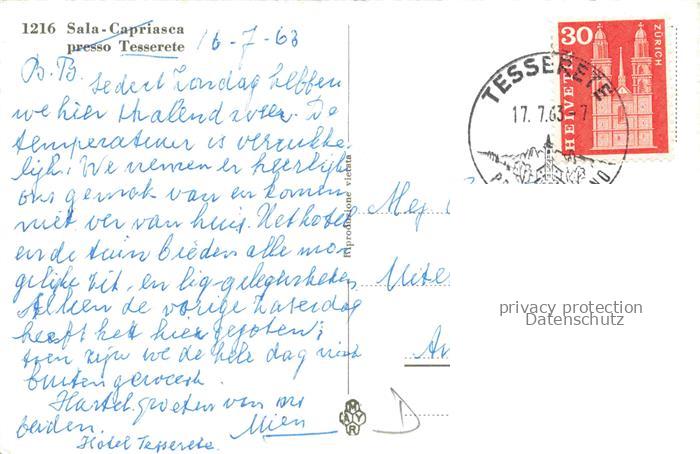 1216 Sala-Capriasca
presso Tesserete
16-7-63
B.B.
sedert Zondag hebben
we hier stralend weer. De
temperatuur is verrukke-
lijk. We nemen er heerlijk
ons gemak van en komen
niet ver van huis. Het hotel
en de tuin bieden alle mo-
gelijke zit- en lig-gelegenheden
Alleen de vorige Zaterdag
heeft het hier gegoten;
toen zijn we de hele dag niet
buiten geweest.
Hartel. groeten van ons
beiden. Mien
Hotel Tesserete.
Riproduzione vietata
MAYR
30
HELVETIA
ZÜRICH
TESSERETE
17.7.63-7
Mej
Uite
An
D
privacy protection
Datenschutz